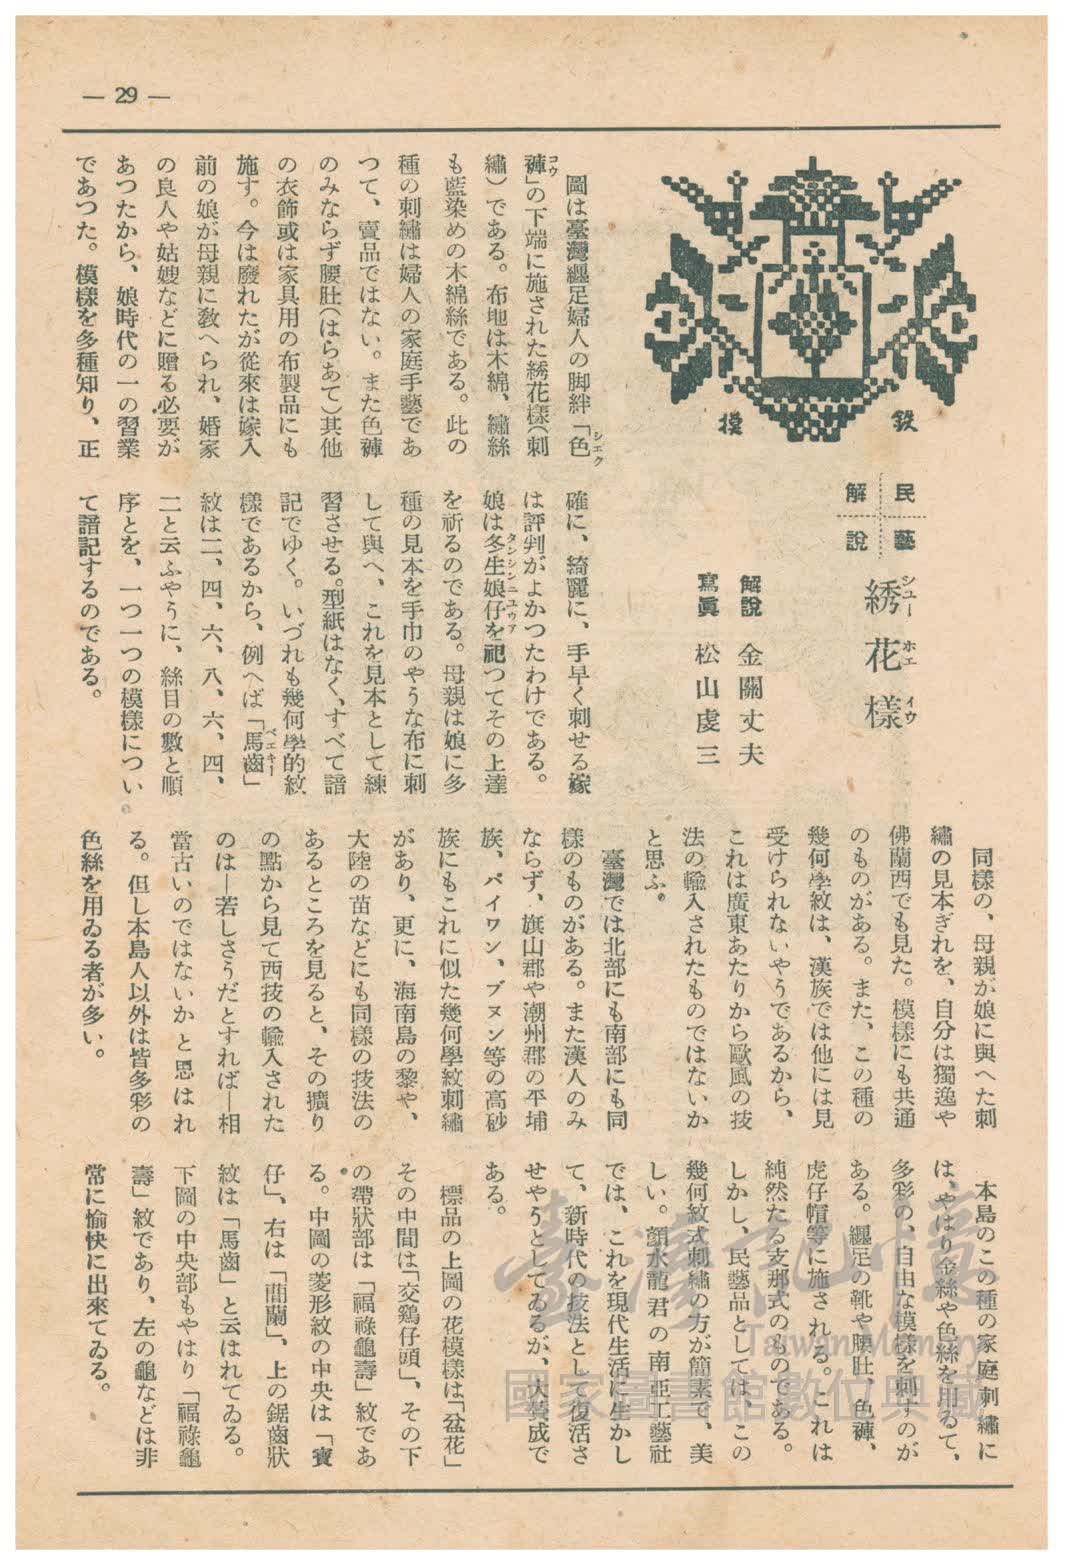 — 29 —
民藝
解說
綉花樣
シユーホエイウ
解說 金關丈夫
寫眞 松山虔三
圖は臺灣纒足婦人の脚絆「色
シエク
褲」の下端に施された綉花樣(刺
コウ
繡)である。布地は木綿、繡絲
も藍染めの木綿絲である。此の
種の刺繡は婦人の家庭手藝であ
つて、賣品ではない。また色褲
のみならず腰肚(はらあて)其他
の衣飾或は家具用の布製品にも
施す。今は廢れたが從來は嫁入
前の娘が母親に敎へられ、婚家
の良人や姑嫂などに贈る必要が
あつたから、娘時代の一の習業
であつた。模樣を多種知り、正
確に、綺麗に、手早く刺せる嫁
は評判がよかつたわけである。
娘は冬生娘仔を祀つてその上達
タンシンニユウア
を祈るのである。母親は娘に多
種の見本を手巾のやうな布に刺
して與へ、これを見本として練
習させる。型紙はなく、すべて諳
記でゆく。いづれも幾何學的紋
樣であるから、例へば「馬齒」
ベエキー
紋は二、四、六、八、六、四、
二と云ふやうに、絲目の數と順
序とを、一つ一つの模樣につい
て諳記するのである。
同樣の、母親が娘に與へた刺
繡の見本ぎれを、自分は獨逸や
佛蘭西でも見た。模樣にも共通
のものがある。また、この種の
幾何學紋は、漢族では他には見
受けられないやうであるから、
これは廣東あたりから歐風の技
法の輸入されたものではないか
と思ふ。
臺灣では北部にも南部にも同
樣のものがある。また漢人のみ
ならず、旗山郡や潮州郡の平埔
族、パイワン、ブヌン等の高砂
族にもこれに似た幾何學紋刺繡
があり、更に、海南島の黎や、
大陸の苗などにも同樣の技法の
あるところを見ると、その擴り
の點から見て西技の輸入された
のは―若しさうだとすれば―相
當古いのではないかと思はれ
る。但し本島人以外は皆多彩の
色絲を用ゐる者が多い。
本島のこの種の家庭刺繡に
は、やはり金絲や色絲を用ゐて、
多彩の、自由な模樣を刺すのが
ある。纒足の靴や腰肚、色褲、
虎仔帽等に施される。これは
純然たる支那式のものである。
しかし、民藝品としては、この
幾何紋式刺繡の方が簡素で、美
しい。顏水龍君の南亞工藝社
では、これを現代生活に生かし
て、新時代の技法として復活さ
せやうとしてゐるが、大賛成で
ある。
標品の上圖の花模樣は「盆花」
その中間は「交鷄仔頭」、その下
の帶狀部は「福祿龜壽」紋であ
る。中圖の菱形紋の中央は「寶
仔」、右は「茼蘭」、上の鋸齒狀
紋は「馬齒」と云はれてゐる。
下圖の中央部もやはり「福祿龜
壽」紋であり、左の龜などは非
常に愉快に出來てゐる。
臺灣記憶
Taiwan Memory
國家圖書館數位典藏